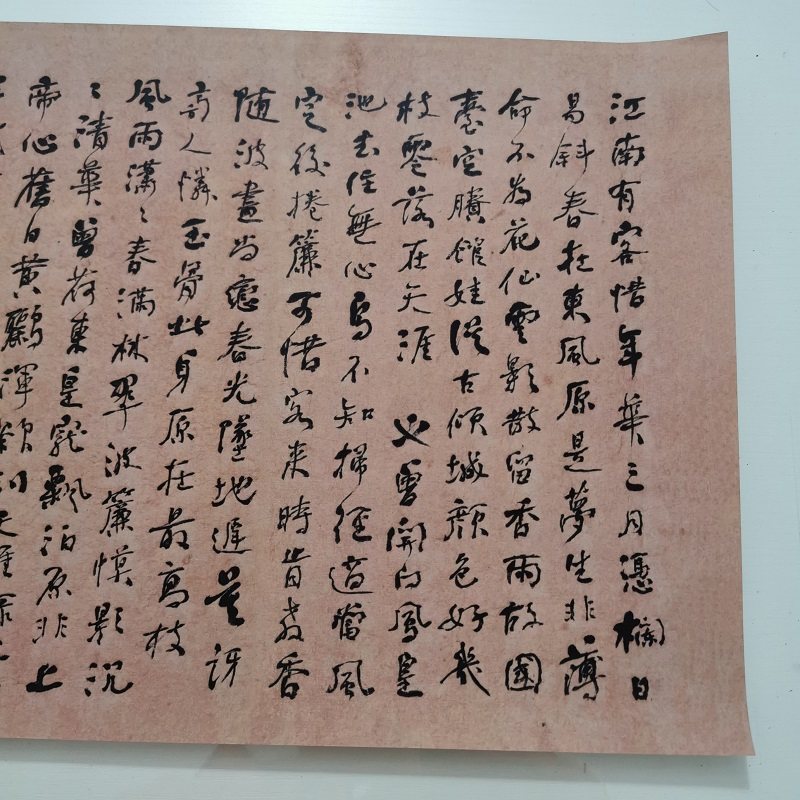 江南有客惜年華三月憑欄日
易斜春在東風原是夢生非薄
命不為花仙雲影散留香雨故國
臺空賸館娃從古傾城顏色好幾
枝零落在天涯 也曾開向鳳皇
池去住無心鳥不知掃徑適當風
定後捲簾可惜客來時肯教香
随波盡尚戀春光墜地遲莫訝
高人憐玉骨此身原在最高枝
風雨瀟〻春滿林翠波簾幙影沉
〻清華曾荷東皇寵飄泊原非上
帝心舊日黃鸝渾欲別天涯